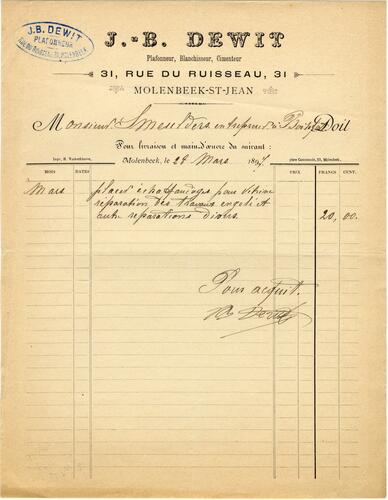 J.B. DEWIT
PLAFONNEUR
RUE DU RUISSEAU, 31, MOLENBEEK
J.-B. DEWIT
Plafonneur, Blanchisseur, Cimenteur
31, RUE DU RUISSEAU, 31
MOLENBEEK-ST-JEAN
Monsieur Smeulders entrepreneur à Doit
Pour livraison et main-d'œuvre du suivant :
Molenbeek, le 29 Mars 1897
MOIS DATES PRIX FRANCS CENT.
Mars placer échaffaudages pour vitrine
réparation des travaux en
autre réparations divers 20,00.
Pour acquit.
JB Dewit